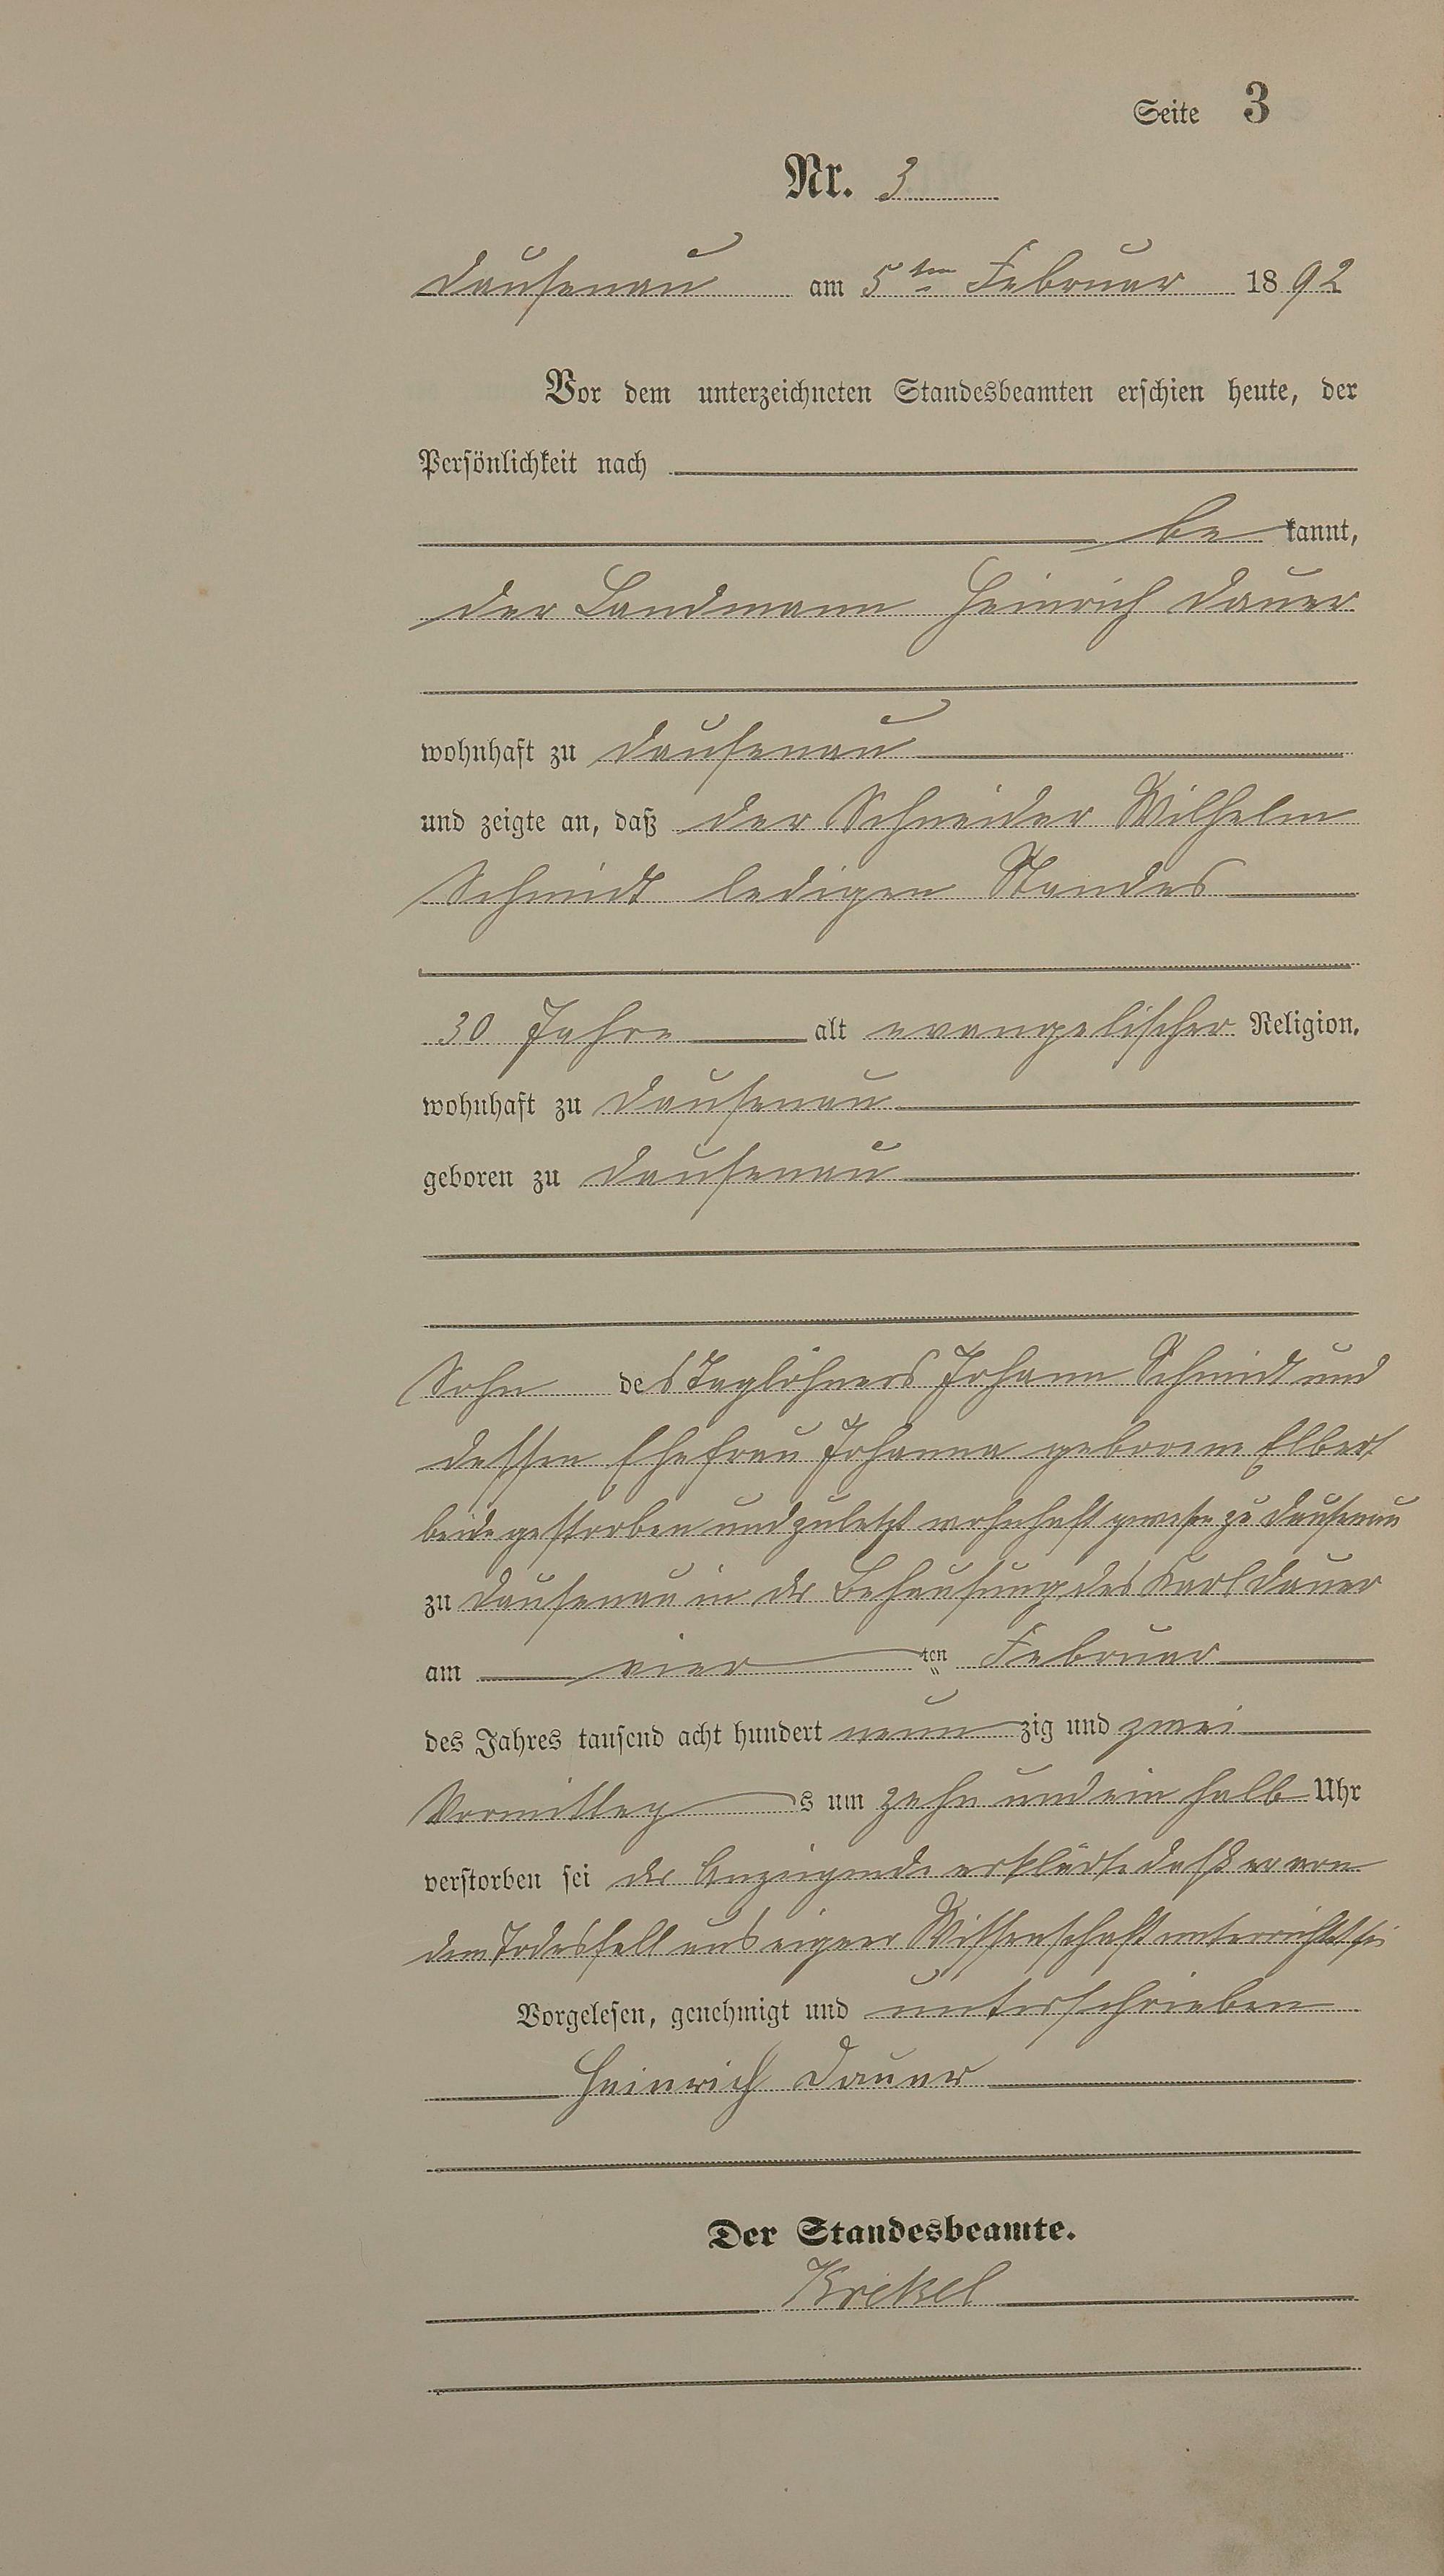 Seite 3
Nr. 3
Dausenau am 5ten Februar 1892
Vor dem unterzeichneten Standesbeamten erschien heute, der
Persönlichkeit nach
be kannt,
der Landmann Heinrich Dauer
wohnhaft zu Dausenau
und zeigte an, daß der Schneider Wilhelm
Schmidt ledigen Standes
30 Jahre alt evangelischer Religion,
wohnhaft zu Dausenau
geboren zu Dausenau
Sohn des Taglöhners Johann Schmidt und
dessen Ehefrau Johanna geborene Elbert
beide gestorben und zuletzt wohnhaft gewesen zu Dausenau
zu Dausenau in der Behausung des Karl Dauer
am vier ten Februar
des Jahres tausend acht hundert neun zig und zwei
Vormittag s um zehn und ein halb Uhr
verstorben sei der Anzeigende erklärte daß er von
dem Todesfall aus eigner Wissenschaft unterrichtet sei
Vorgelesen, genehmigt und unterschrieben
Heinrich Dauer
Der Standesbeamte.
Krekel